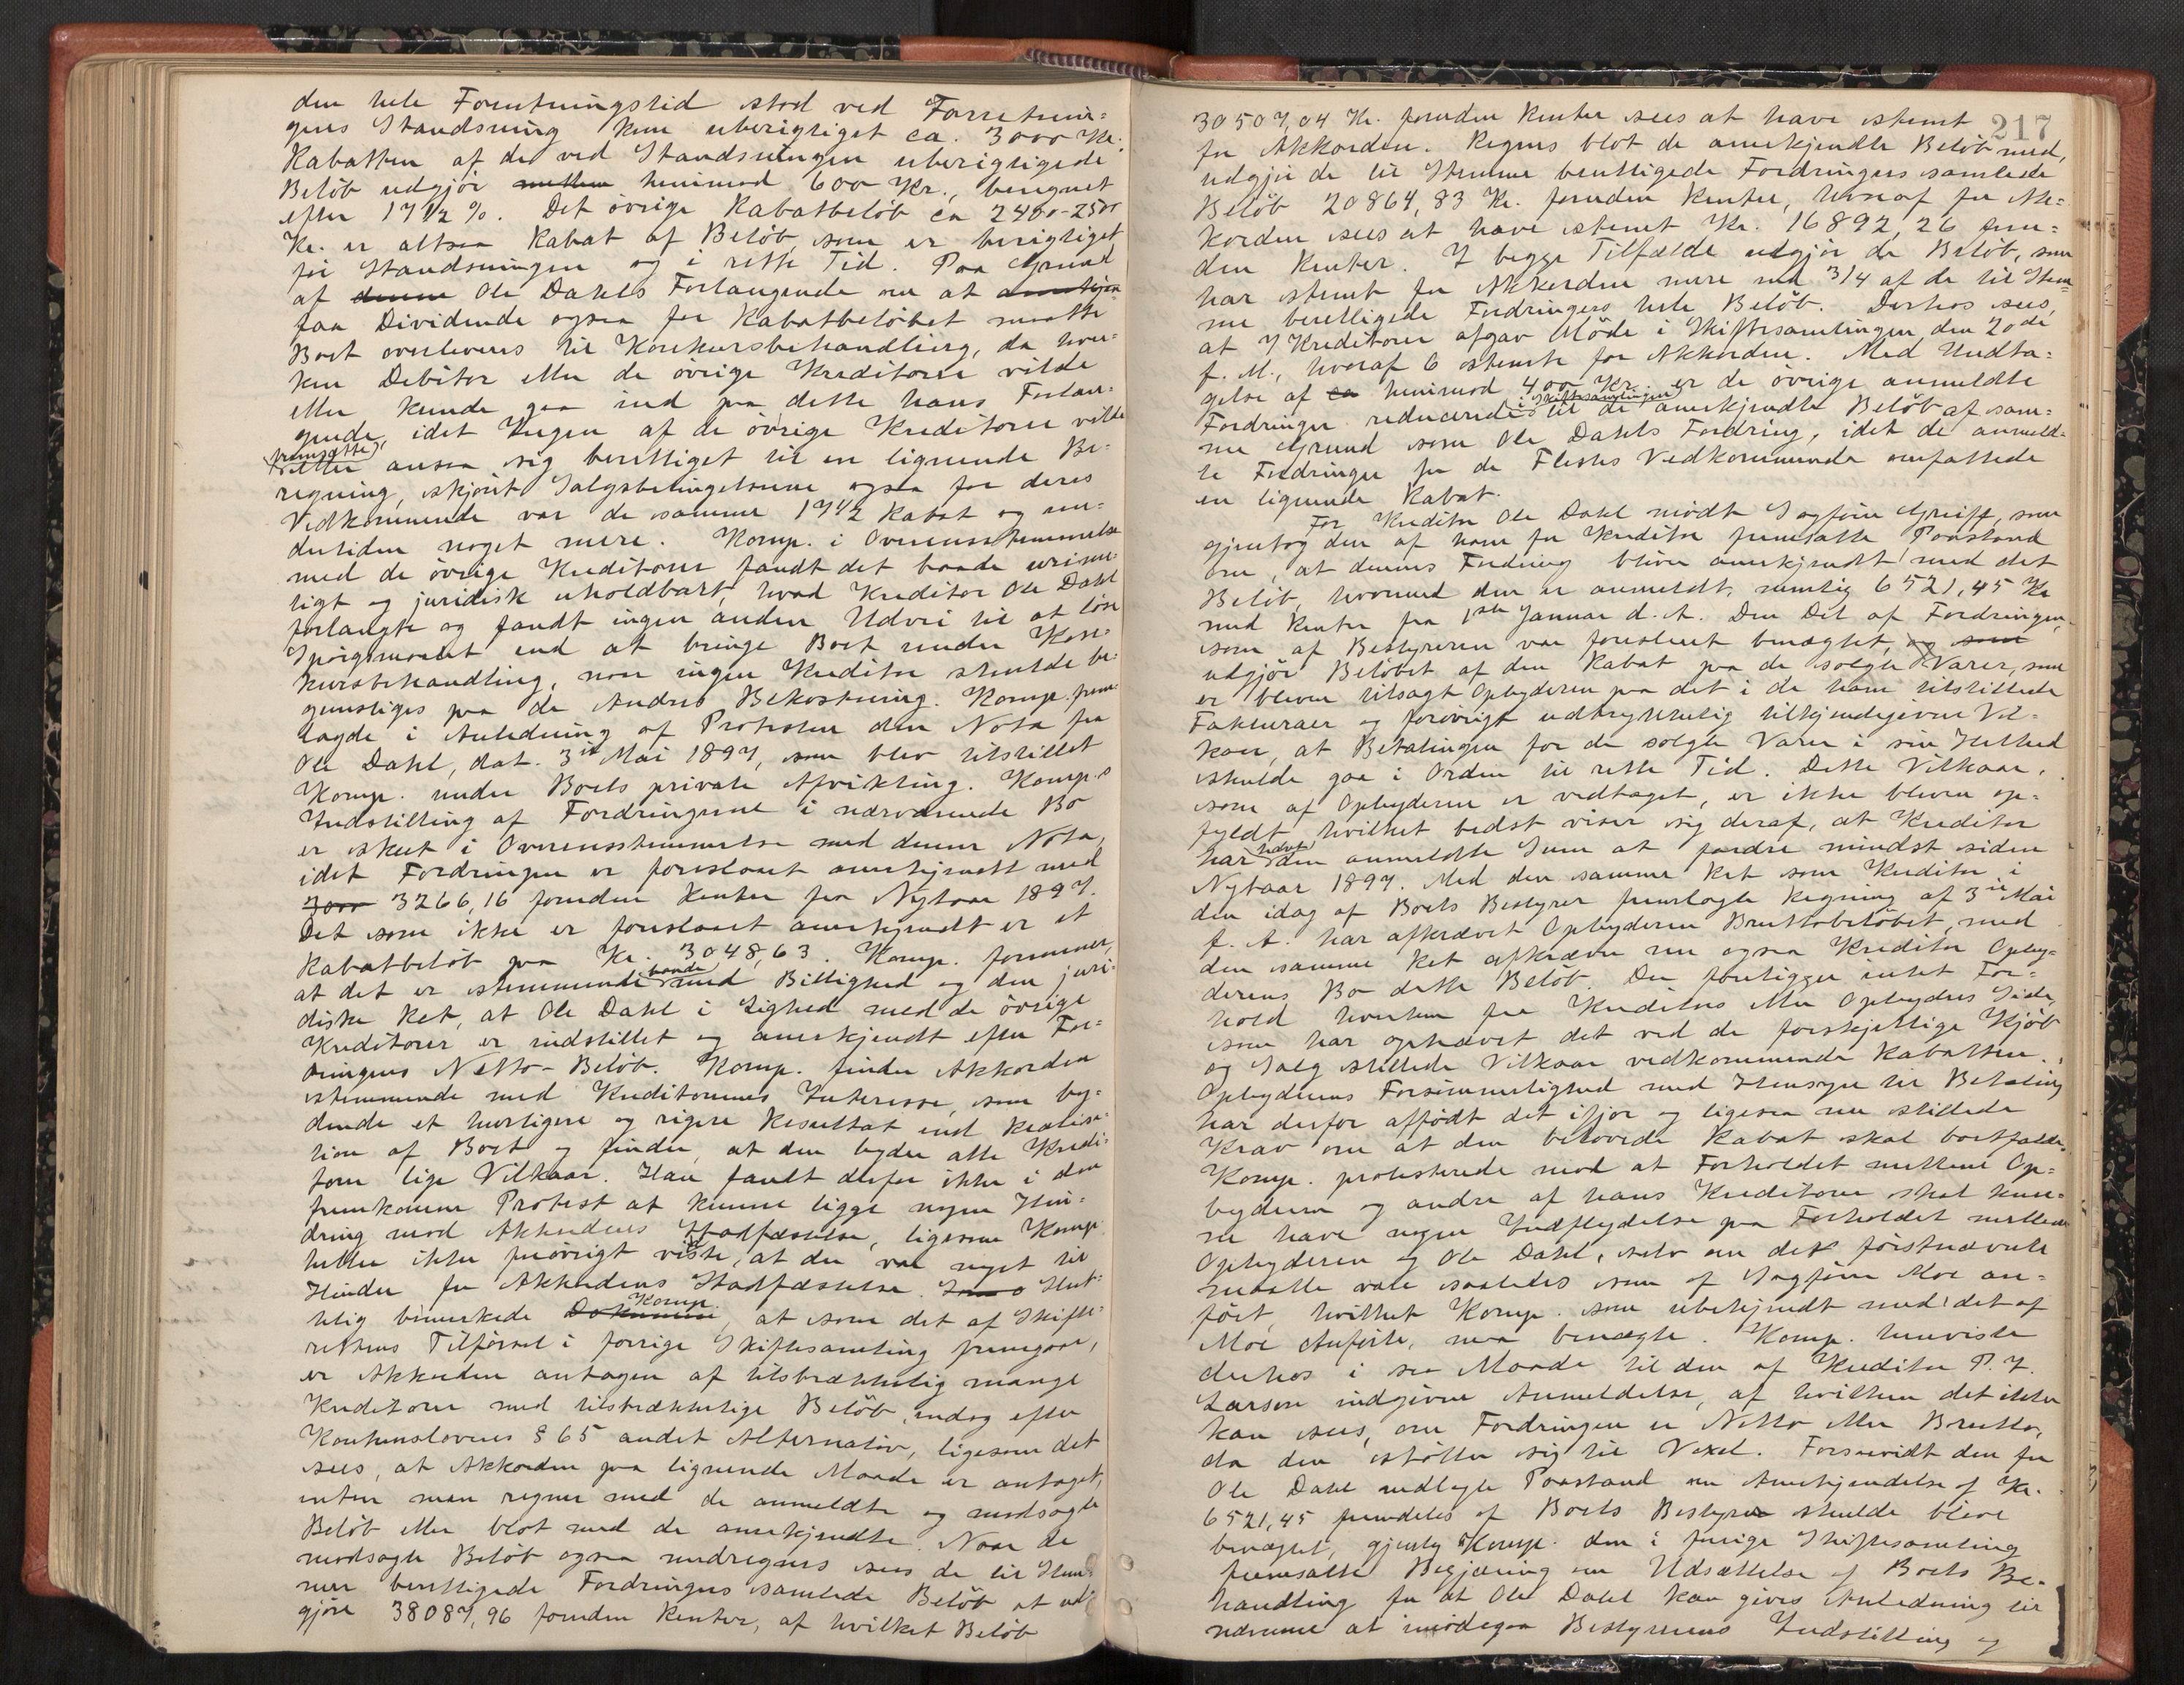 den hele Forretningstid stod ved Forretnin-
gens Standsning kun uberigtiget ca. 3000 Kr.
Rabatten af de ved Standsningen uberigtigede
Beløb udgjør mellem henimod 600 Kr., beregnet
efter 17 1/2 %. Det øvrige Rabatbeløb ca 2400-2500
Kr. er altsaa Rabat af Beløb, som er berigtiget
før Standsningen og i rette Tid. Paa Grund
af denne Ole Dahls Forlangende om at
faa Dividende ogsaa for Rabatbeløbet maatte
Boet overleveres til Konkursbehandling, da hver-
ken Debitor eller de øvrige Kreditorer vilde
eller kunde gaa ind paa dette hans Forlan-
gende, idet Ingen af de øvrige Kreditorer vilde
fremsætte eller ansaa sig berettiget til en lignende Be-
regning, skjønt Salgsbetingelserne ogsaa for deres
Vedkommende var de samme 17 1/2 Rabat og un-
dertiden noget mere. Komp. i Overensstemmelse
med de øvrige Kreditorer fandt det baade urime-
ligt og juridisk uholdbart, hvad Kreditor Ole Dahl
forlangte og fandt ingen anden Udvei til at løse
Spørgsmaalet end at bringe Boet under Kon-
kursbehandling, naar ingen Kreditor skulde be-
gunstiges paa de Andres Bekostning. Komp. frem-
lagde i Anledning af Protesten den Nota fra
Ole Dahl, dat. 3die Mai 1897, som blev tilstillet
Komp. under Boets private Afvikling. Komp.s
Indstilling af Fordringerne i nærværende Bo
er skeet i Overensstemmelse med denne Nota,
idet Fordringen er foreslaaet anerkjendt med
3000 3266,16 foruden Renter fra Nytaar 1897.
Det som ikke er foreslaaet anerkjendt er et
Rabatbeløb paa Kr. 3048,63. Komp. formener,
at det er stemmende baade med Billighed og den juri-
diske Ret, at Ole Dahl i Lighed med de øvrige
Kreditorer er indstillet og anerkjendt efter For-
dringens Netto-Beløb. Komp. finder Akkorden
stemmende med Kreditorernes Interesse, som by-
dende et hurtigere og rigere Resultat end Realisa-
tion af Boet og finder, at den byder alle Kredi-
torer lige Vilkaar. Han fandt derfor ikke i den
fremkomne Protest at kunne ligge nogen Hin-
dring mod Akkordens Stadfæstelse, ligesom Komp
heller ikke forøvrigt vidste, at der var noget til
Hinder for Akkordens Stadfæstelse. Slut-
telig bemærkede Komp., at som det af Skifte-
rettens Tilførsel i forrige Skiftesamling fremgaar,
er Akkorden antagen af tilstrækkelig mange
Kreditorer med tilstrækkelige Beløb endog efter
Konkurslovens § 65 andet Alternativ, ligesom det
sees, at Akkorden paa lignende Maade er antaget,
enten man regner med de anmeldte og modsagte
Beløb eller blot med de anerkjendte. Naar de
modsagte Beløb ogsaa medregnes sees de til Stem-
mer berettigede Fordringers samlede Beløb at ud-
gjøre 38087,96 foruden Renter, af hvilket Beløb
217
30507,04 Kr. foruden Renter sees at have stemt
for Akkorden. Regnes blot de anerkjendte Beløb med,
udgjør de til Stemme berettigede Fordringers samlede
Beløb 20864,83 Kr. foruden Renter, hvoraf for Ak-
korden sees at have stemt Kr. 16892,26 foru-
den Renter. I begge Tilfælde udgjør de Beløb, som
har stemt for Akkorden mere end 3/4 af de til Stem-
me berettigede Fordringers hele Beløb. Derhos sees,
at 7 Kreditorer afgav Møde i Skiftesamlingen den 20de
f. M., hvoraf 6 stemte for Akkorden. Med Undta-
gelse af ca henimod 400 Kr. er de øvrige anmeldte
Fordringer reducerede i Skiftesamlingen til de anerkjendte Beløb af sam-
me Grund som Ole Dahls Fordring, idet de anmeld-
te Fordringer for de Flestes Vedkommende omfattede
en lignende Rabat.
For Kreditor Ole Dahl mødte Sagfører Greiff, som
gjentog den af ham for Kreditor fremsatte Paastand
om, at dennes Fordring bliver anerkjendt med det
Beløb, hvormed den er anmeldt, nemlig 6521,45 Kr
med Renter fra 1ste Januar d. A. Den Del af Fordringen,
som af Bestyreren var foreslaaet benægtet, og som
udgjør Beløbet af den Rabat paa de solgte Varer, som
er bleven tilsagt Opbyderen paa det i de ham tilstillede
Fakturaer og forøvrigt udtrykkelig tilkjendegivne Vil-
kaar, at Betalingen for de solgte Varer i sin Helhed
skulde gaa i Orden til rette Tid. Dette Vilkaar,
som af Opbyderen er vedtaget, er ikke bleven op-
fyldt, hvilket bedst viser sig deraf, at Kreditor
har den anmeldte Sum at fordre mindst siden
Nytaar 1897. Med den samme Ret som Kreditor i
den idag af Boets Bestyrer fremlagte Regning af 3die Mai
f. A. har afkrævet Opbyderen Bruttobeløbet, med
den samme Ret afkræver nu ogsaa Kreditor Opby-
derens Bo dette Beløb. Der foreligger intet For-
hold hverken fra Kreditors eller Opbyders Side,
som har ophævet det ved de forskjellige Kjøb
og Salg stillede Vilkaar vedkommende Rabatten.
Opbyderens Forsømmelighed med Hensyn til Betaling
har derfor affødt det ifjor og ligesaa nu stillede
Krav om at den belovede Rabat skal bortfalde.
Komp. protesterede mod at Forholdet mellem Op-
byderen og andre af hans Kreditorer skal kun-
ne have nogen Indflydelse paa Forholdet mellem
Opbyderen og Ole Dahl, selv om det førstnævnte
maatte være saaledes som af Sagfører Moe an-
ført, hvilket Komp. som ubekjendt med det af
Moe Anførte, maa benægte. Komp. henviste
derhos i saa Maade til den af Kreditor P. I.
Larsen indgivne Anmeldelse, af hvilken det ikke
kan sees, om Fordringen er Netto eller Brutto,
da den støtter sig til Vexel. Forsaavidt den for
Ole Dahl nedlagte Paastand om Anerkjendelse af Kr.
6521,45 fremdeles af Boets Bestyrer skulde blive
benægtet, gjentog Komp. den i forrige Skiftesamling
fremsatte Begjæring om Udsættelse af Boets Be-
handling for at Ole Dahl kan gives Anledning til
nærmere at imødegaa Bestyrerens Indstilling og